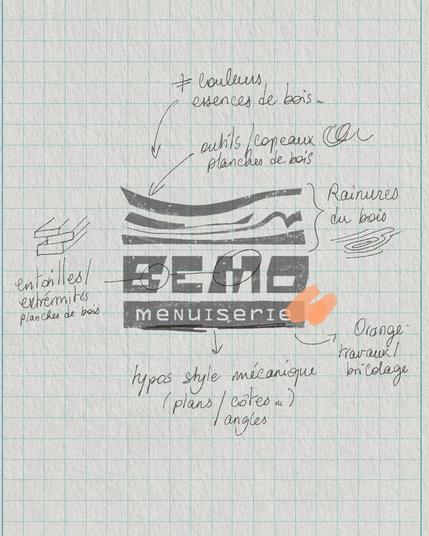 ≠ couleurs
essences de bois...
outils/copeaux
planches de bois
Rainures
du bois
entailles/
extrémités
planches de bois
BEMO
menuiserie
Orange-
travaux/
bricolage
typos style mécanique
(plans/côtes...)
angles